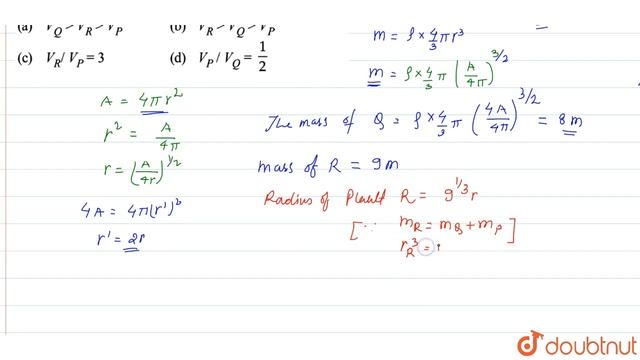 (a) V_Q > V_R > V_P (b) V_R > V_Q > V_P
(c) V_R / V_P = 3 (d) V_P / V_Q = 1/2
m = ρ × 4/3 πr³
m = ρ × 4/3 π (A/4π)^3/2
A = 4πr²
r² = A/4π
r = (A/4r)^1/2
4A = 4π(r')²
r' = 2r
The mass of Q = ρ × 4/3 π (4A/4π)^3/2 = 8m
mass of R = 9m
Radius of Planet R = 9^1/3 r
[∵ m_R = m_Q + m_P]
r_R³ =
doubtnut